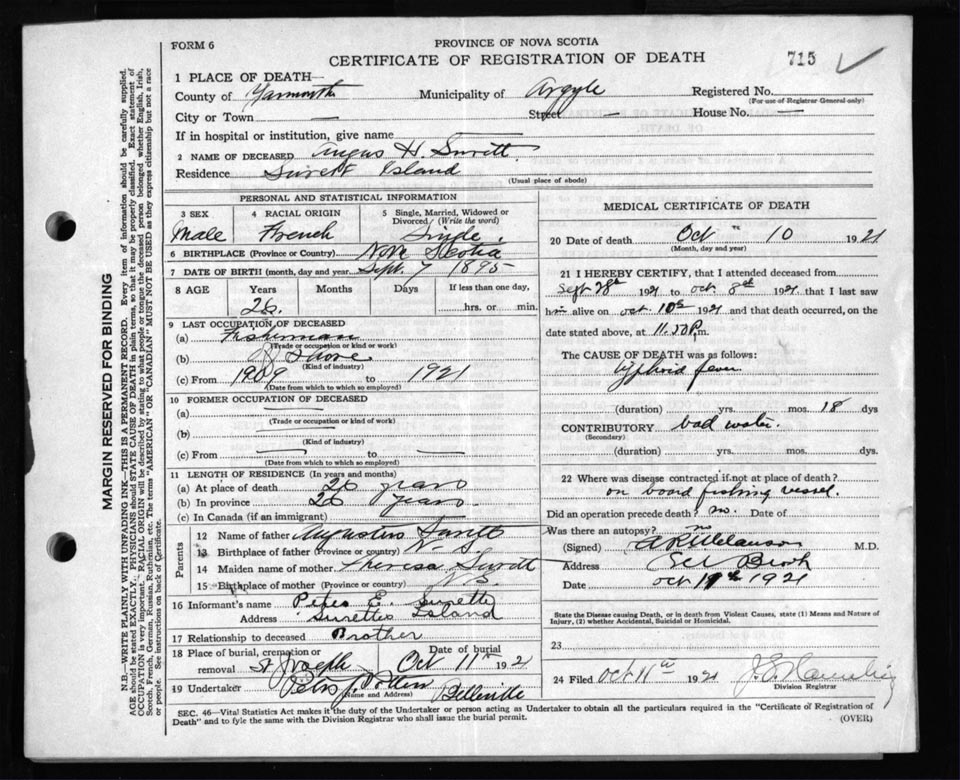 FORM 6
PROVINCE OF NOVA SCOTIA
CERTIFICATE OF REGISTRATION OF DEATH
715
1 PLACE OF DEATH—
County of Yarmouth Municipality of Argyle Registered No.
(For use of Registrar General only)
City or Town — Street — House No. —
If in hospital or institution, give name —
2 NAME OF DECEASED Angus H. Surett
Residence Surett Island
(Usual place of abode)
PERSONAL AND STATISTICAL INFORMATION
3 SEX Male
4 RACIAL ORIGIN French
5 Single, Married, Widowed or Divorced (Write the word) Single.
6 BIRTHPLACE (Province or Country) Nova Scotia
7 DATE OF BIRTH (month, day and year) Sept. 7 1895
8 AGE Years Months Days If less than one day,
26. hrs. or min.
9 LAST OCCUPATION OF DECEASED
(a) Fisherman
(Trade or occupation or kind or work)
(b) Shore
(Kind of industry)
(c) From 1909 to 1921
(Date from which to which so employed)
10 FORMER OCCUPATION OF DECEASED
(a) —
(Trade or occupation or kind of work)
(b) —
(Kind of industry)
(c) From — to —
(Date from which to which so employed)
11 LENGTH OF RESIDENCE (In years and months)
(a) At place of death 26 years
(b) In province 26 years
(c) In Canada (if an immigrant)
Parents
12 Name of father Augustus Surett
13 Birthplace of father (Province or country) N. S.
14 Maiden name of mother Theresa Surett
15 Birthplace of mother (Province or country) N.S.
16 Informant's name Peter E. Surette
Address Surettes Island
17 Relationship to deceased Brother
18 Place of burial, cremation or removal St Joseph
Date of burial Oct 11th 1921
19 Undertaker Belleville
(Name and Address)
MEDICAL CERTIFICATE OF DEATH
20 Date of death Oct 10 1921
(Month, day and year)
21 I HEREBY CERTIFY, that I attended deceased from
Sept 28th 1921 to Oct 8th 1921 that I last saw
him alive on Oct. 10th 1921 and that death occurred, on the
date stated above, at 11.30 P.m.
The CAUSE OF DEATH was as follows:
Typhoid fever
(duration) yrs. mos. 18 dys
CONTRIBUTORY bad water.
(Secondary)
(duration) yrs. mos. dys.
22 Where was disease contracted if not at place of death?
on board fishing vessel.
Did an operation precede death? no. Date of
Was there an autopsy? no
(Signed) M.D.
Address Eel Brook
Date Oct 11th 1921
State the Disease causing Death, or in death from Violent Causes, state (1) Means and Nature of
Injury, (2) whether Accidental, Suicidal or Homicidal.
23
24 Filed Oct 11th 1921
Division Registrar
SEC. 46—Vital Statistics Act makes it the duty of the Undertaker or person acting as Undertaker to obtain all the particulars required in the "Certificate of Registration of
Death" and to fyle the same with the Division Registrar who shall issue the burial permit.
(OVER)
MARGIN RESERVED FOR BINDING
N.B.—WRITE PLAINLY WITH UNFADING INK—THIS IS A PERMANENT RECORD. Every item of information should be carefully supplied.
AGE should be stated EXACTLY. PHYSICIANS should STATE CAUSE OF DEATH in plain terms, so that it may be properly classified. Exact statement of
OCCUPATION is very important. RACIAL ORIGIN will be described by stating to what people or tongue the deceased person belonged whether English, Irish,
Scotch, French, German, Russian, Ruthenian, etc. The terms "AMERICAN" OR "CANADIAN" MUST NOT BE USED as they express citizenship but not a race
or people. See instructions on back of Certificate.